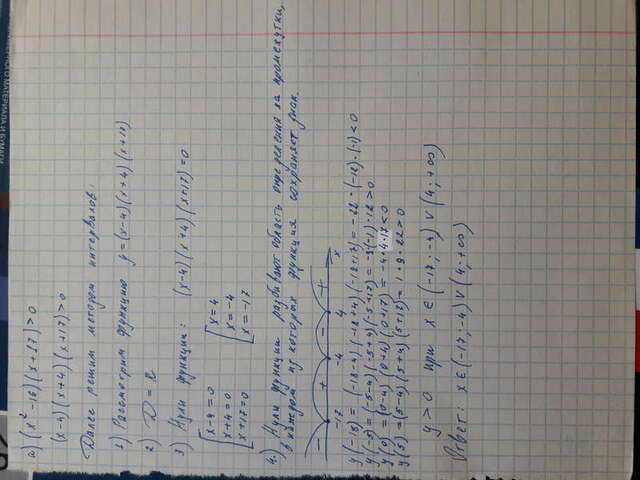 МАТЕРИАЛА И БУМАГИ
а) (x² -16)(x+17)>0
(x-4)(x+4)(x+17)>0
Далее решим методом интервалов:
1) Рассмотрим функцию y=(x-4)(x+4)(x+17)
2) D = R
3) Нули функции: (x-4)(x+4)(x+17)=0
[x-4=0 [x=4
x+4=0 x=-4
x+17=0 x=-17
4.) Нули функции разбивают область определения на промежутки,
в каждом из которых функция сохраняет знак.
- + - +
-17 -4 4 x
y(-18) = (-18-4)(-18+4)(-18+17)= -22·(-12)·(-1)<0
y(-5) = (-5-4)(-5+4)(-5+17)= -9(-1)·12>0
y(0) = (0-4)(0+4)(0+17)= -4·4·17<0
y(5) =(5-4)(5+4)(5+17)= 1·9·22>0
y>0 при x∈(-17;-4)∨(4;+∞)
Ответ: x∈(-17;-4)∨(4;+∞)